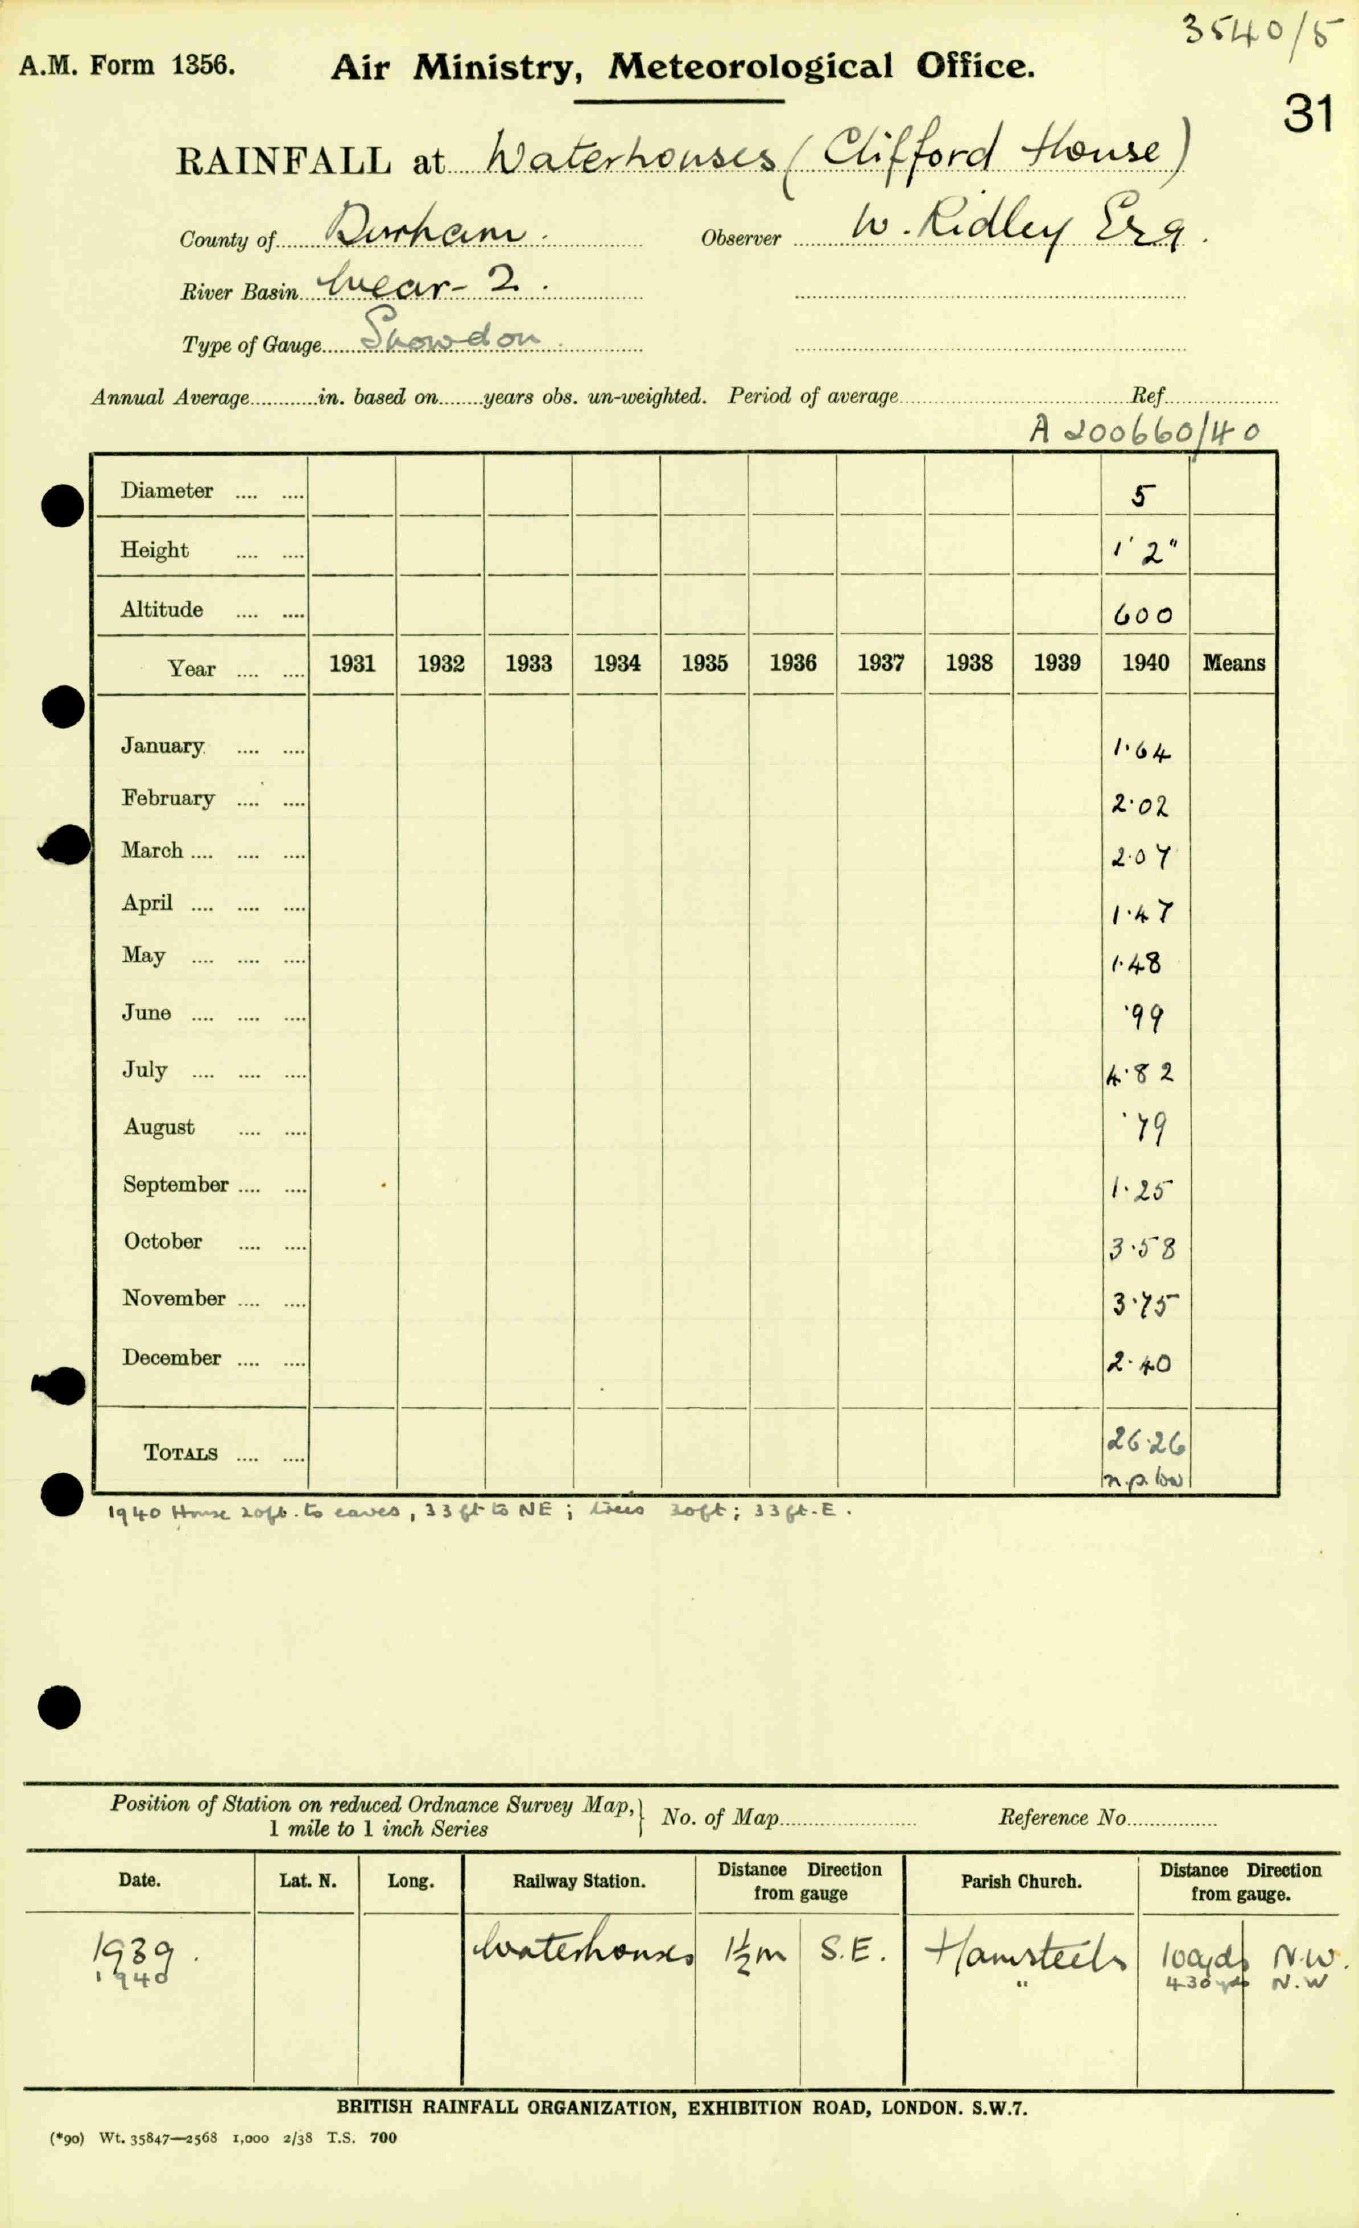 3540/5
A.M. Form 1356. Air Ministry, Meteorological Office.
31
RAINFALL at Waterhouses (Clifford House)
County of Durham. Observer W. Ridley Esq.
River Basin Wear - 2.
Type of Gauge Snowdon
Annual Average in. based on years obs. un-weighted. Period of average Ref.
A 200660/40
Diameter 5
Height 1' 2"
Altitude 600
Year 1931 1932 1933 1934 1935 1936 1937 1938 1939 1940 Means
January 1.64
February 2.02
March 2.07
April 1.47
May 1.48
June .99
July 4.82
August .79
September 1.25
October 3.58
November 3.75
December 2.40
TOTALS 26.26
n.p. low
1940 House 20ft. to eaves, 33 ft to NE; trees 30ft; 33ft. E.
Position of Station on reduced Ordnance Survey Map, } No. of Map Reference No.
1 mile to 1 inch Series
Date. Lat. N. Long. Railway Station. Distance Direction from gauge Parish Church. Distance Direction from gauge.
1939. Waterhouses 1½m S.E. Hamsteels 100yds N.W.
1940 " 430 yds N.W
BRITISH RAINFALL ORGANIZATION, EXHIBITION ROAD, LONDON. S.W.7.
(*90) Wt. 35847—2568 1,000 2/38 T.S. 700